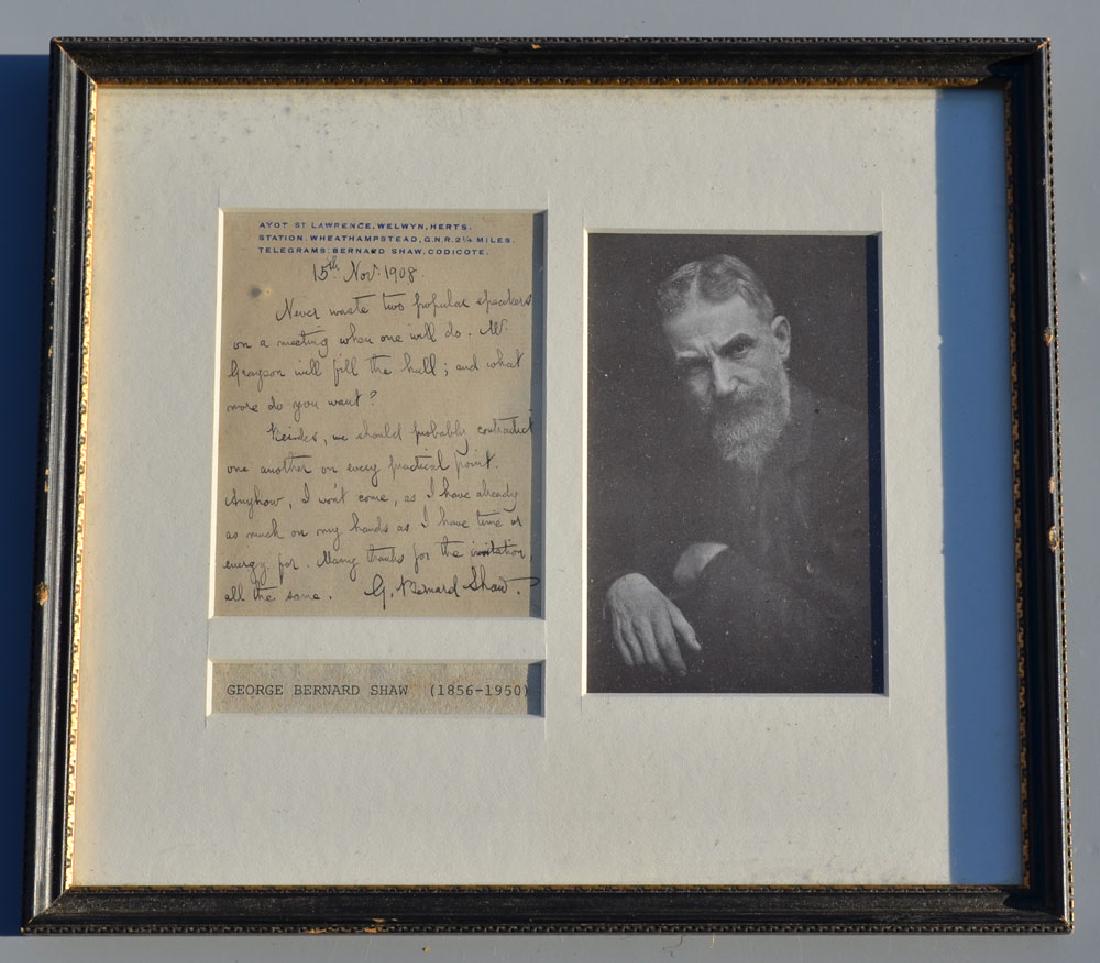 AYOT ST LAWRENCE, WELWYN, HERTS.
STATION: WHEATHAMPSTEAD, G.N.R. 2¼ MILES.
TELEGRAMS: BERNARD SHAW, CODICOTE.
15th Nov. 1908.
Never waste two popular speakers
on a meeting when one will do. Mr.
Grayson will fill the hall; and what
more do you want?
Besides, we should probably contradict
one another on every practical point.
Anyhow, I won't come, as I have already
as much on my hands as I have time or
energy for. Many thanks for the invitation
all the same. G. Bernard Shaw.
GEORGE BERNARD SHAW (1856-1950)